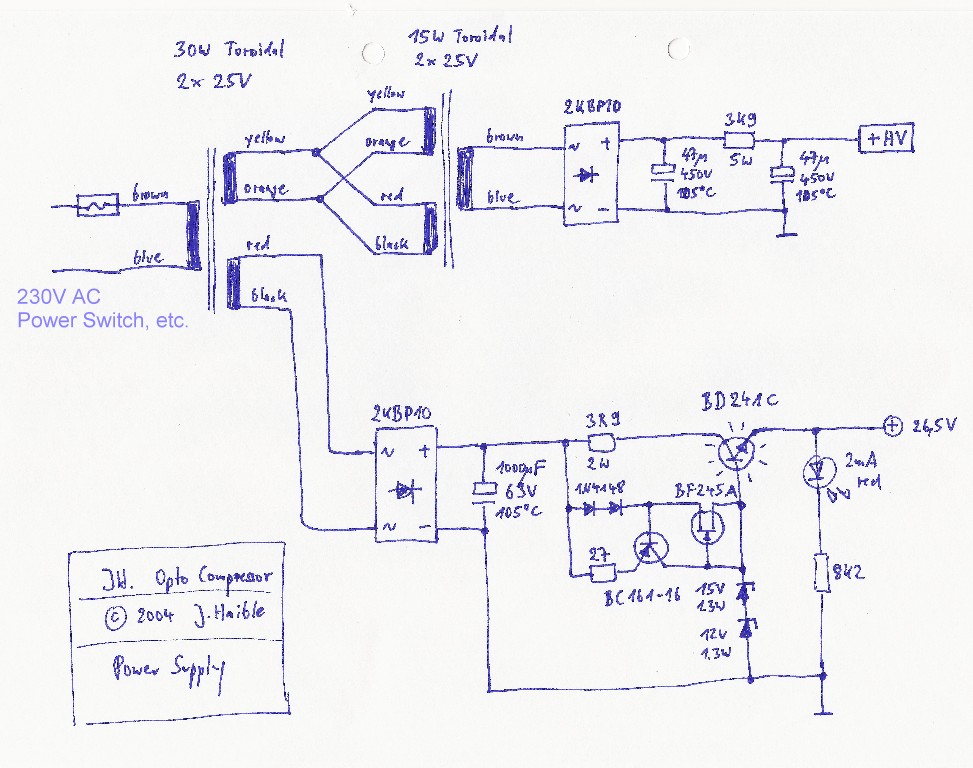 30W Toroidal
2x 25V
15W Toroidal
2x 25V
yellow
orange
red
black
brown
blue
yellow
orange
red
black
brown
blue
230V AC
Power Switch, etc.
2KBP10
~
~
+
−
47µ
450V
105°C
3k9
5W
47µ
450V
105°C
+HV
2KBP10
~
~
+
−
1000µF
63V
105°C
3R9
2W
1N4148
27
BC161-16
BF245A
BD241C
15V
1.3W
12V
1.3W
+ 26,5V
2mA
red
8k2
JH. Opto Compressor
© 2004 J. Haible
Power Supply